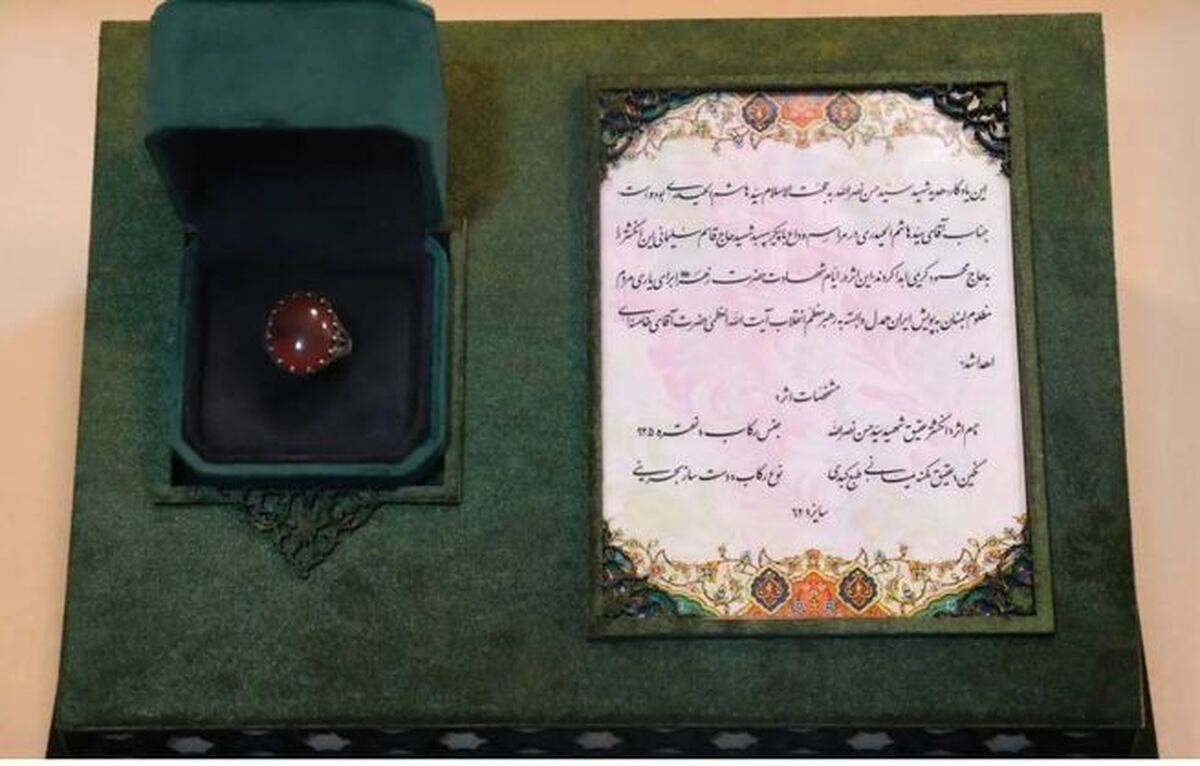 این یادگار، هدیه شهید سید حسن نصرالله به حجت الاسلام سید هاشم الحیدری بوده است
جناب آقای سید هاشم الحیدری در مراسم وداع با پیکر سپهبد شهید حاج قاسم سلیمانی این انگشتر را
به حاج محمود کریمی اهدا کردند. این اثر در ایام شهادت حضرت زهرا برای یاری مردم
مظلوم لبنان به پویش ایران همدل وابسته به رهبر معظم انقلاب آیت الله العظمی حضرت آقای خامنه‌ای
اهدا شد.
مشخصات اثر:
نام اثر: انگشتر عقیق شهید سید حسن نصرالله جنس رکاب: نقره ۹۲۵
نگین: عقیق کهنه یمانی طبع کبدی نوع رکاب: دست ساز بحرینی
سایز: ۶۲